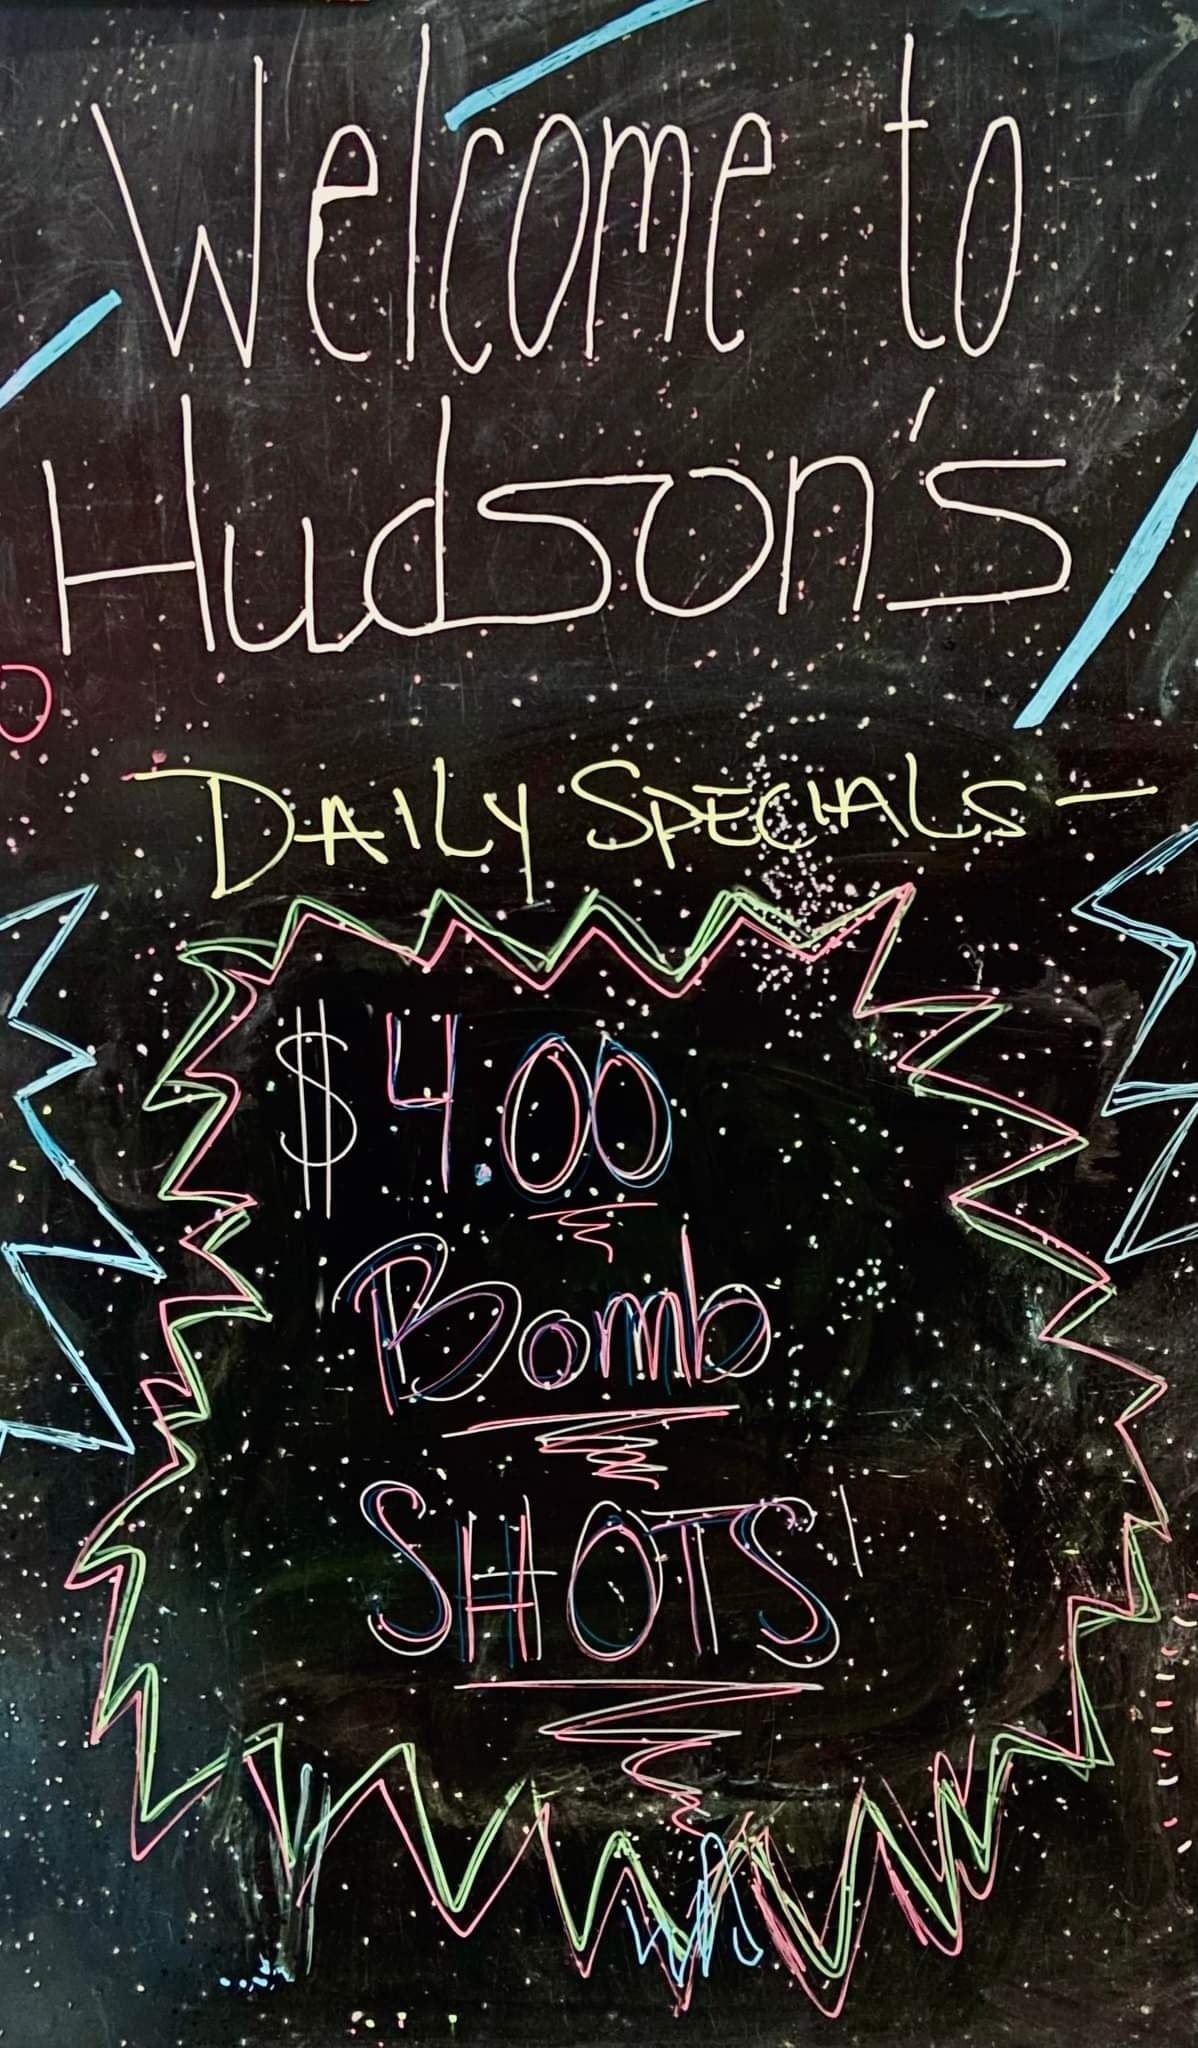 Welcome to
Hudson's
DAILY SPECIALS-
$4.00
Bomb
SHOTS